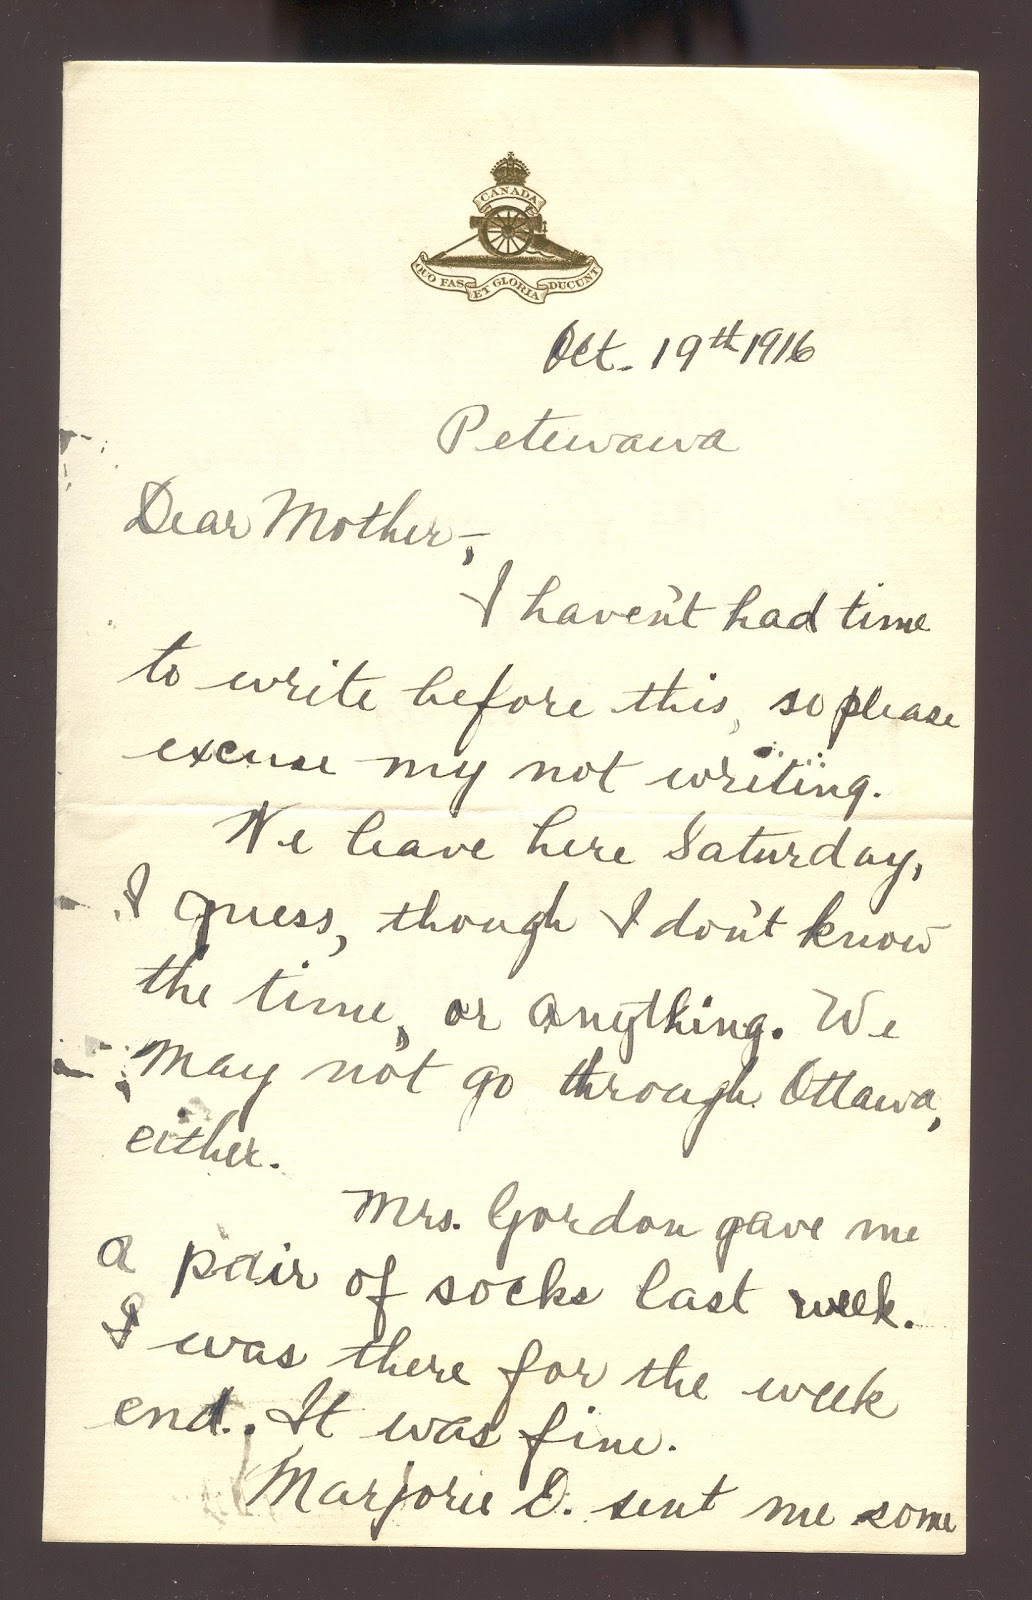 CANADA
QUO FAS ET GLORIA DUCUNT
Oct. 19th 1916
Petewawa
Dear Mother,-
I haven't had time
to write before this, so please
excuse my not writing.
We leave here Saturday,
I guess, though I don't know
the time, or anything. We
may not go through Ottawa,
either.
Mrs. Gordon gave me
a pair of socks last week.
I was there for the week
end. It was fine.
Marjorie D. sent me some